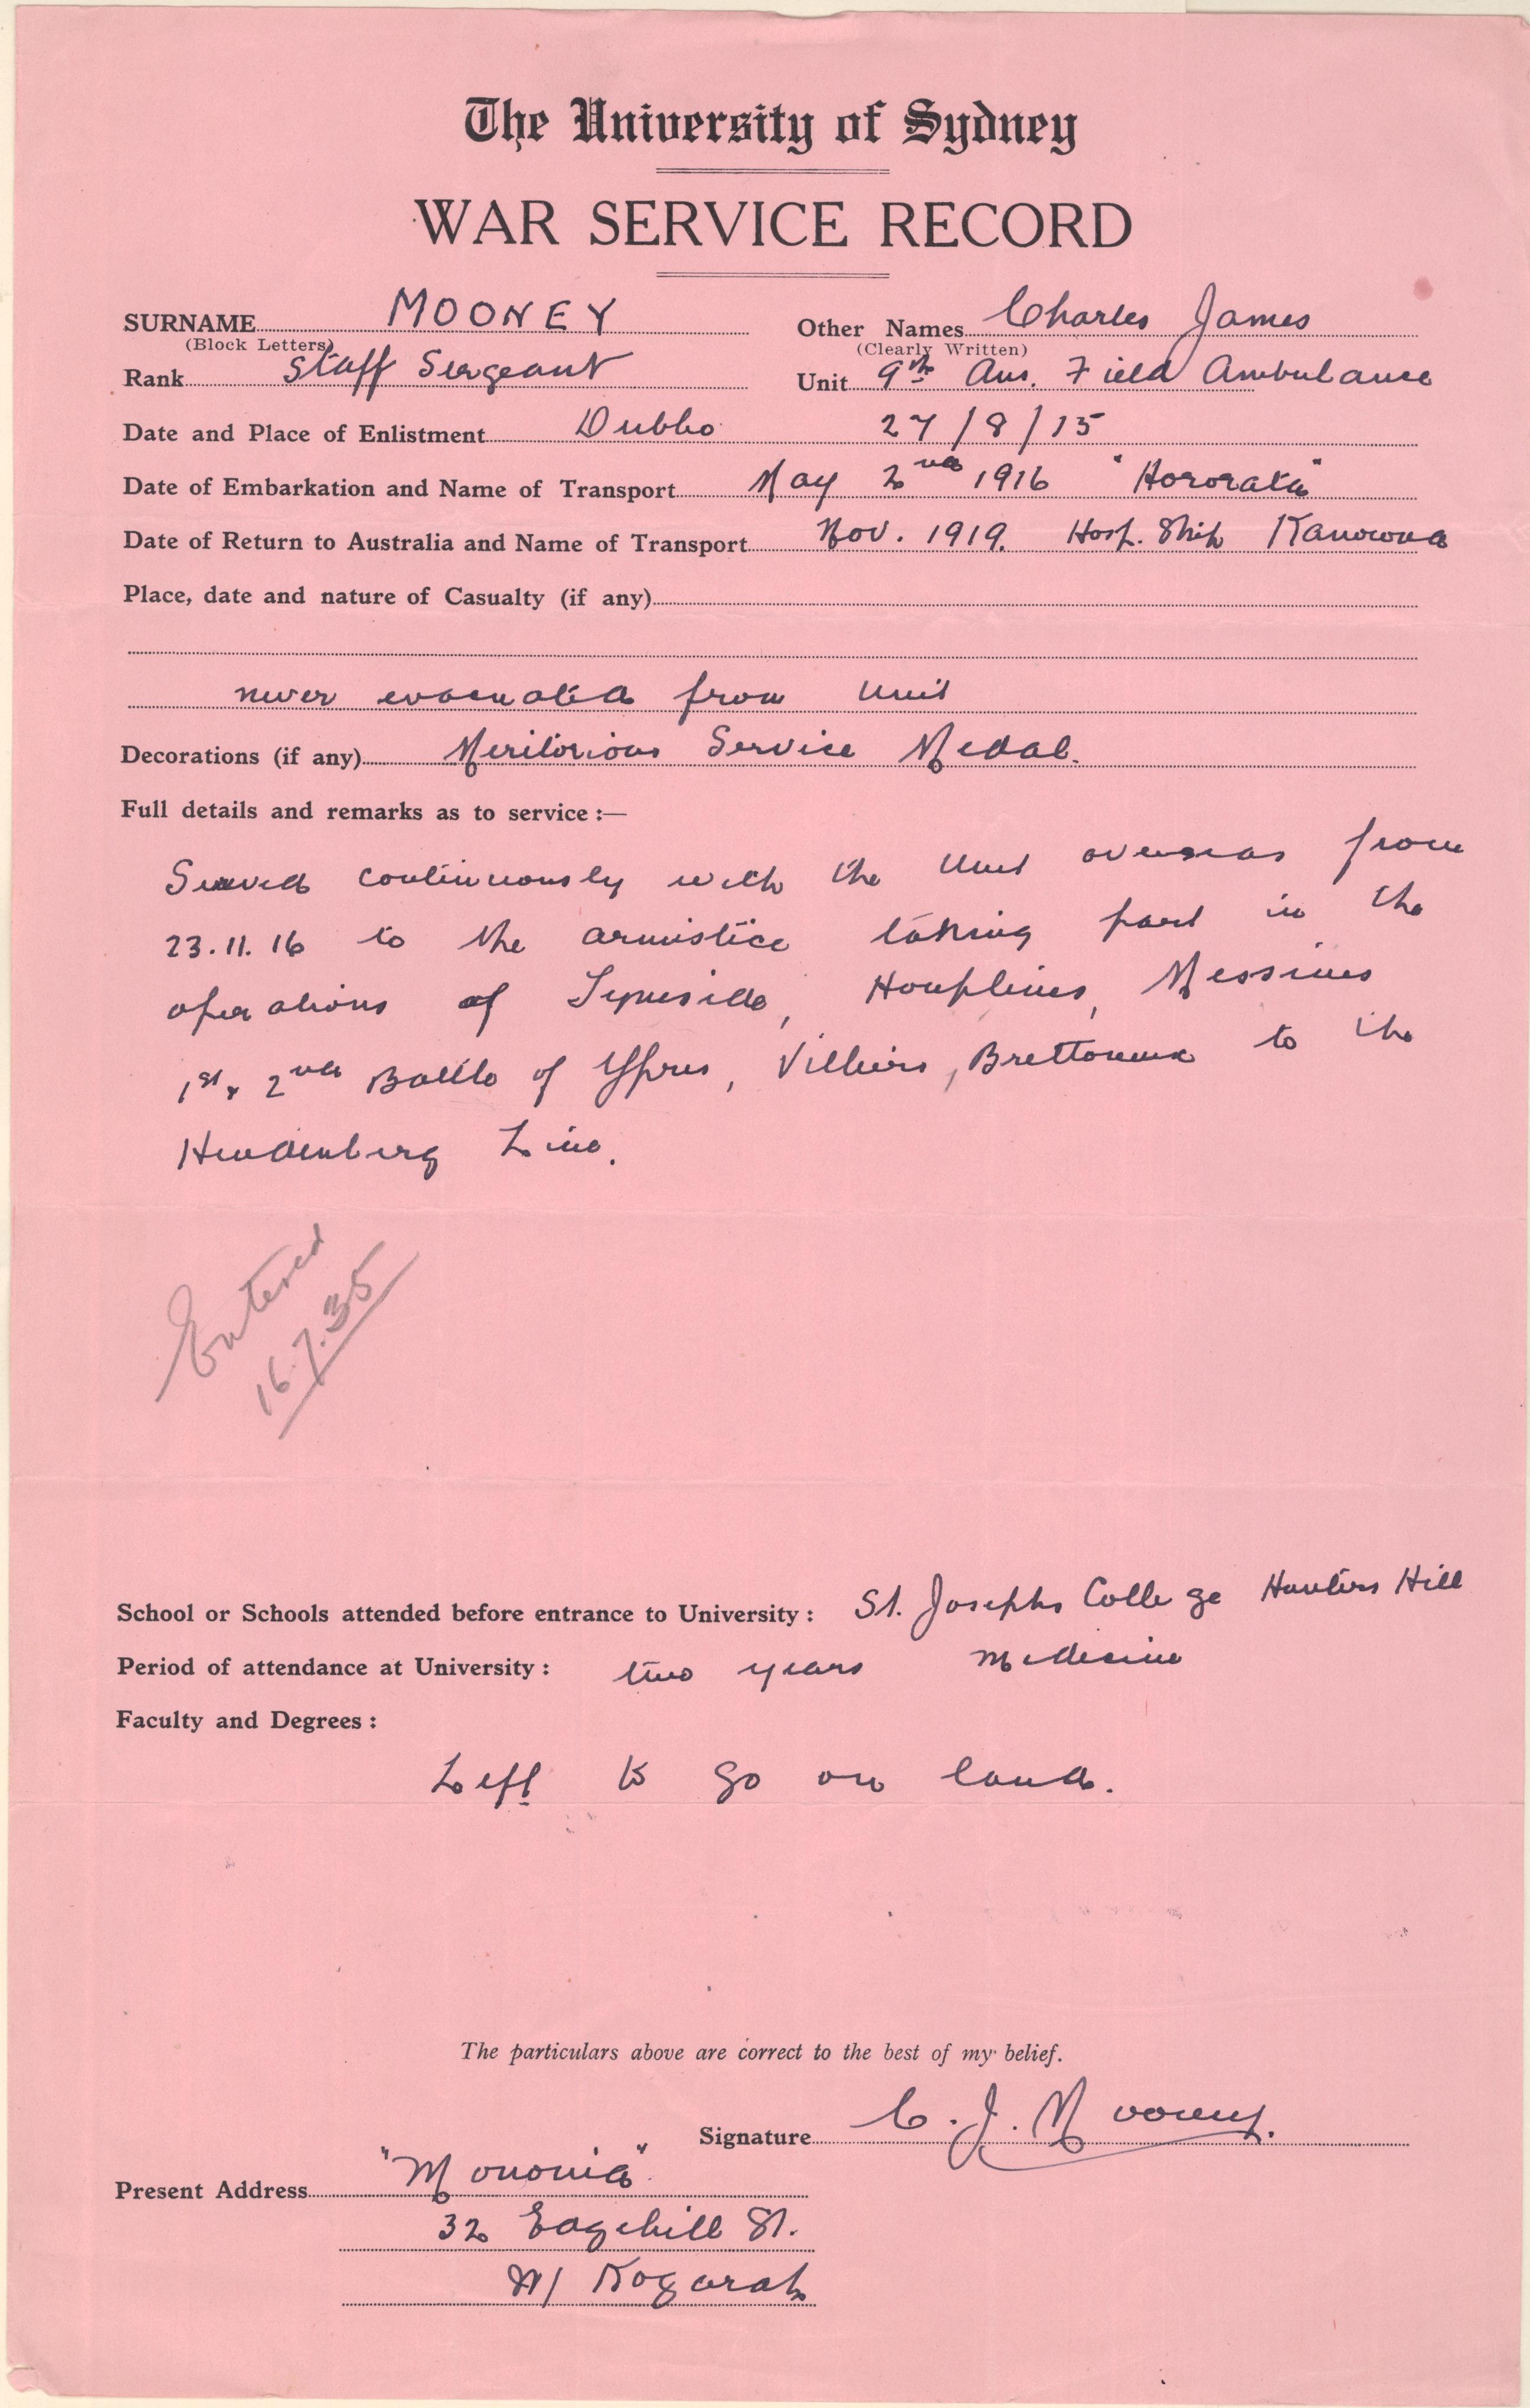 The University of Sydney
WAR SERVICE RECORD
SURNAME MOONEY Other Names Charles James
(Block Letters) (Clearly Written)
Rank Staff Sergeant Unit 9th Aus. Field Ambulance
Date and Place of Enlistment Dubbo 27/8/15
Date of Embarkation and Name of Transport May 2nd 1916 "Hororata"
Date of Return to Australia and Name of Transport Nov. 1919. Hosp. Ship Kanowna
Place, date and nature of Casualty (if any)
never evacuated from Unit
Decorations (if any) Meritorious Service Medal.
Full details and remarks as to service :—
Served continuously with the Unit overseas from
23.11.16 to the armistice taking part in the
operations of Tyneside, Houplines, Messines
1st & 2nd Battle of Ypres, Villiers, Brettoneux to the
Hindenberg Line.
Entered
16.7.35
School or Schools attended before entrance to University : St. Josephs College Hunters Hill
Period of attendance at University : two years Medicine
Faculty and Degrees :
Left to go on land.
The particulars above are correct to the best of my belief.
Signature C. J. Mooney.
Present Address "Mononia"
32 Edgehill St.
W/ Kogarah